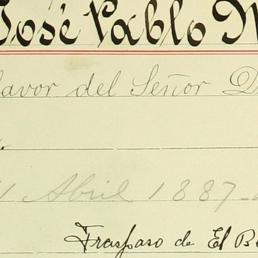 José Pablo
favor del Señor D
1 Abril 1887
Traspaso de El B